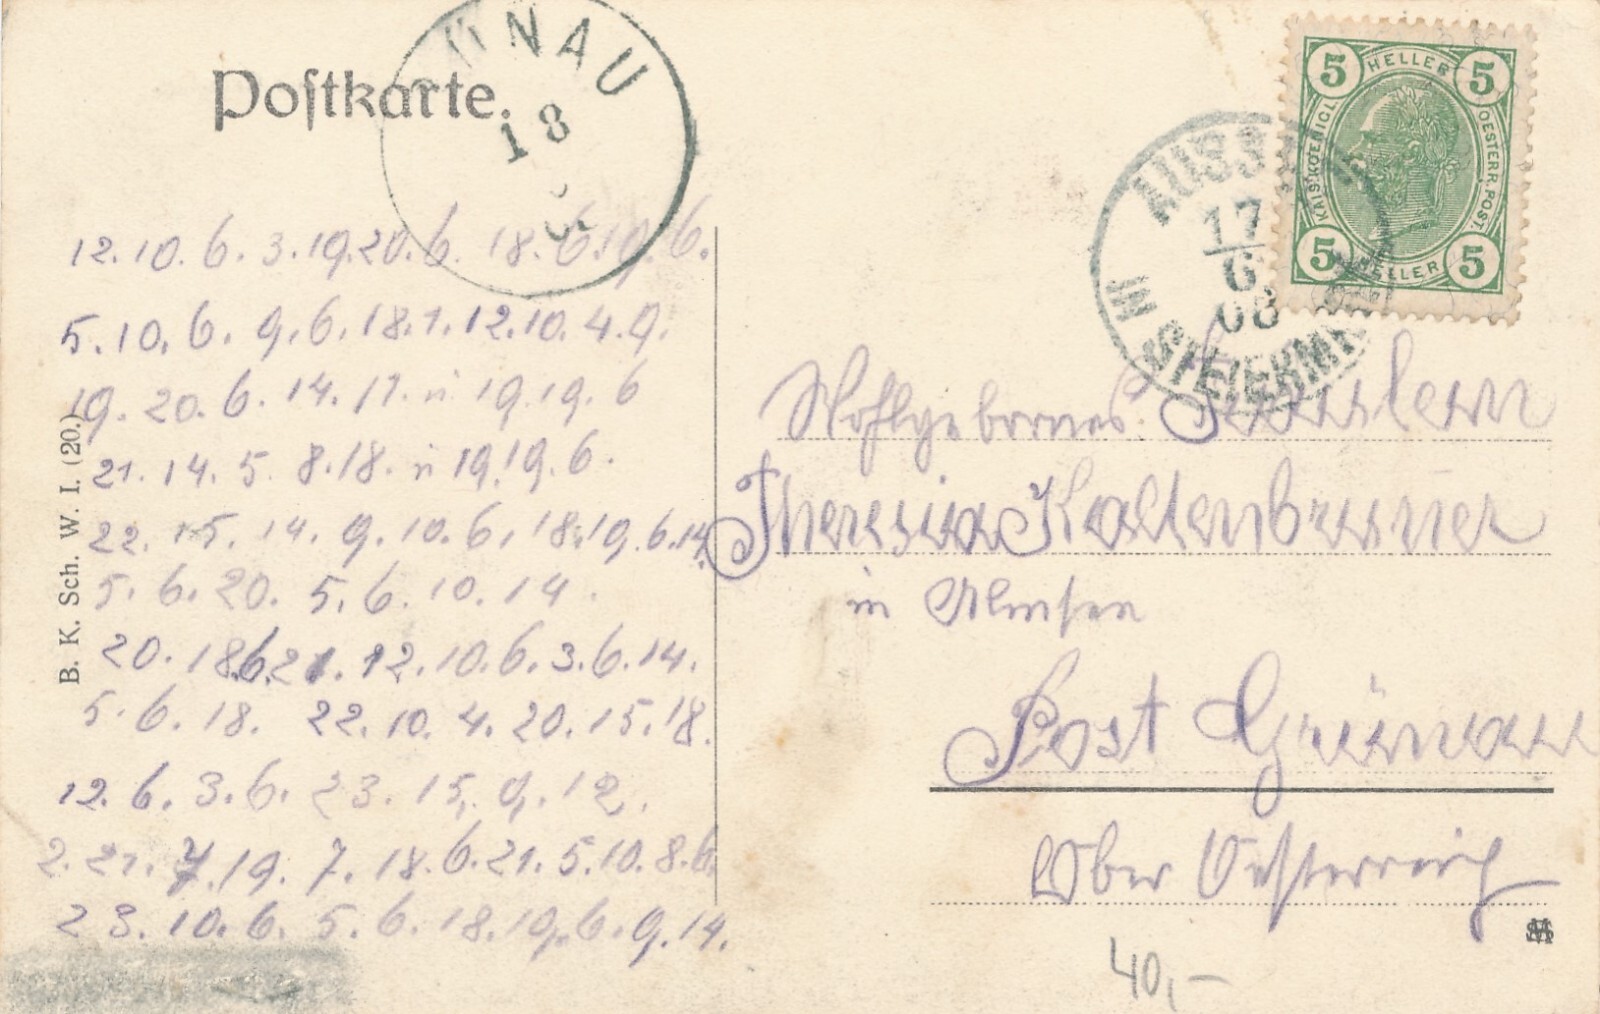 Postkarte.
ÜNAU
18
AUSS
17
6
08
IN STEIERMK
5 HELLER 5
KAIS.KOENIGL. OESTERR.POST.
5 HELLER 5
12. 10. 6. 3. 19. 20. 6. 18. 6. 19. 6.
5. 10. 6. 9. 6. 18. 1. 12. 10. 4. 9.
19. 20. 6. 14. 17. ü 19. 19. 6
21. 14. 5. 8. 18. ü 19. 19. 6.
22. 15. 14. 9. 10. 6. 18. 19. 6. 14.
5. 6. 20. 5. 6. 10. 14.
20. 18. 6. 21. 12. 10. 6. 3. 6. 14.
5. 6. 18. 22. 10. 4. 20. 15. 18.
12. 6. 3. 6. 23. 15. 9. 12.
2. 21. 7. 19. 7. 18. 6. 21. 5. 10. 8. 6.
23. 10. 6. 5. 6. 18. 19. 6. 9. 14.
B. K. Sch. W. I. (20.)
Wohlgebornes Fräulein
Theresia Kaltenbrunner
in Almsee
Post Grünau
Ober Oesterreich
40,-